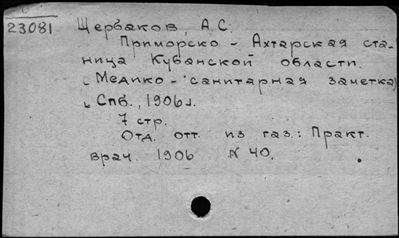 23081 Щербаков, А.С.
Приморско - Ахтарская ста-
ница Кубанской области.
(Медико - санитарная заметка)
Спб., 1906 г.
7 стр.
Отд. отт. из газ.: Практ.
врач. 1906 N 40.